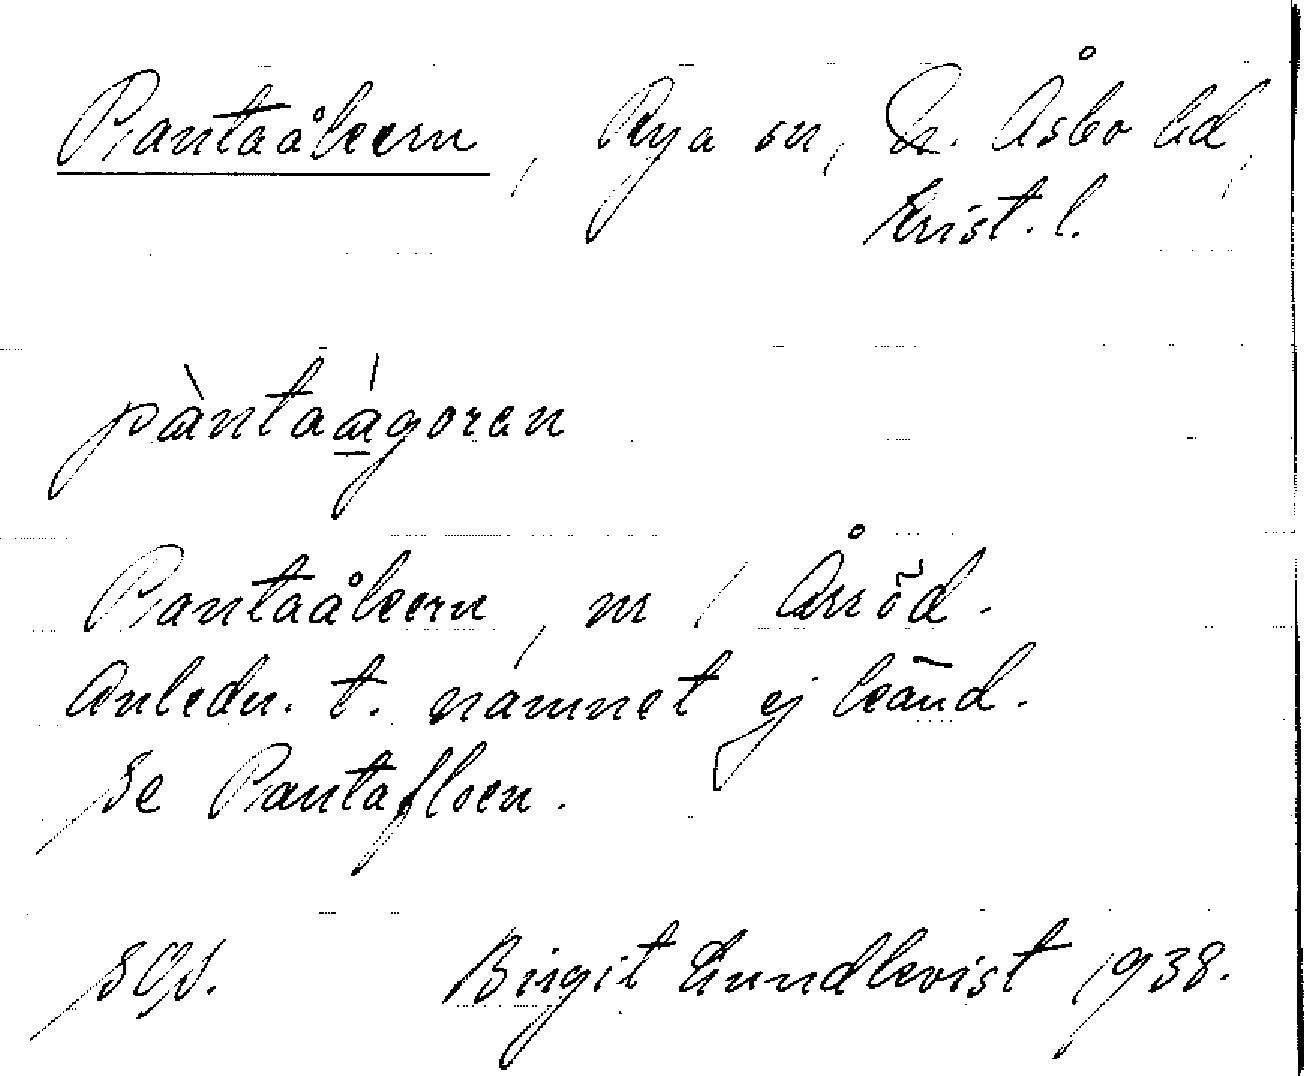 Pantaåkern, Rya sn, N. Åsbo hd,
Krist. l.
pàntaágoren
Pantaåkern, m / Arröd.
Anledn. t. namnet ej känd.
Se Pantafloen.
Birgit Lundkvist 1938.